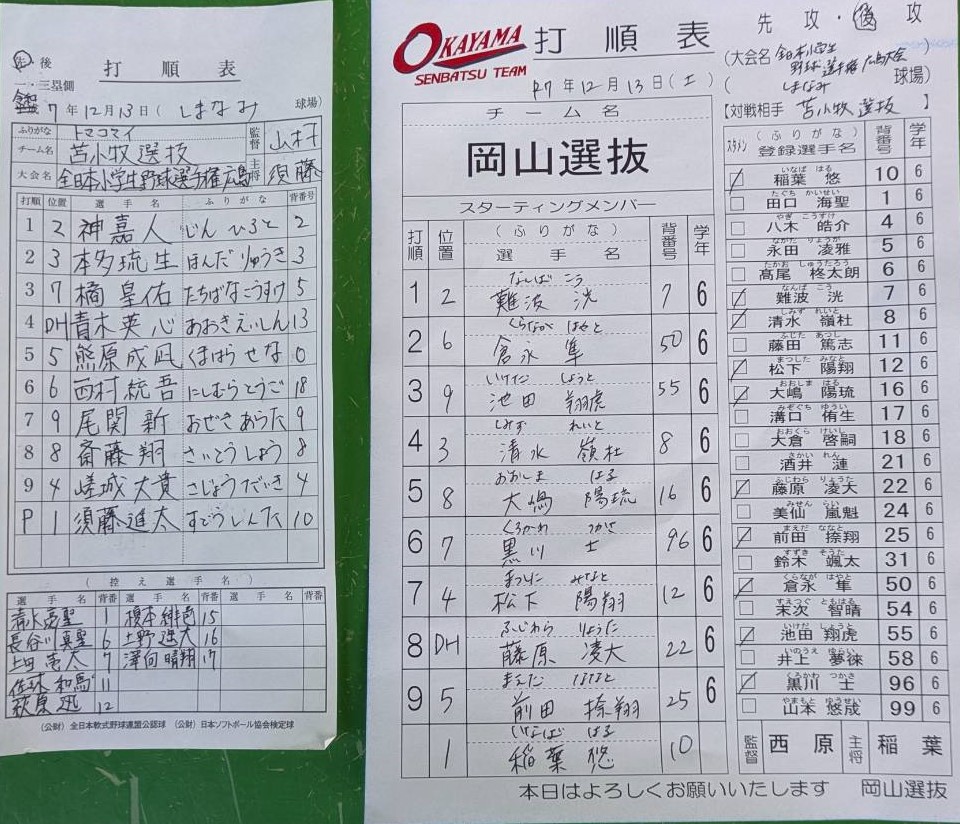 先 後
打順表
一・三塁側
7年12月13日(しまなみ球場)
ふりがな トマコマイ
チーム名 苫小牧選抜
監督 山村
大会名 全日本小学生野球選手権広島
主将 須藤
打順 位置 選手名 ふりがな 背番号
1 2 神嘉人 じんひろと 2
2 3 本多琉生 ほんだりゅうき 3
3 7 橘皇佑 たちばなこうすけ 5
4 DH 青木英心 あおきえいしん 13
5 5 熊原成凪 くまはらせな 0
6 6 西村統吾 にしむらとうご 18
7 9 尾関新 おぜきあらた 9
8 8 斎藤翔 さいとうしょう 8
9 4 嵯城大貴 さじょうだいき 4
P 1 須藤進太 すどうしんた 10
(控え選手名)
選手名 背番 選手名 背番 選手名 背番
清水 1 榎本 15
長谷川真聖 6 土野 大 16
上田 大 7 澤向晴翔 17
佐 和馬 11
萩原迅 12
(公財)全日本軟式野球連盟公認球 (公財)日本ソフトボール協会検定球
OKAYAMA
SENBATSU TEAM
打順表
R7年12月13日(土)
チーム名
岡山選抜
スターティングメンバー
打順 位置 (ふりがな) 選手名 背番号 学年
なんばこう
1 2 難波洸 7 6
くらながはやと
2 6 倉永隼 50 6
いけだしょうと
3 9 池田翔虎 55 6
しみずれいと
4 3 清水嶺杜 8 6
おおしまはる
5 8 大嶋陽琉 16 6
くろかわつかさ
6 7 黒川士 96 6
まつしたみなと
7 4 松下陽翔 12 6
ふじわらりょうた
8 DH 藤原凌大 22 6
まえだななと
9 5 前田捺翔 25 6
いなばはる
1 稲葉悠 10
先攻・後攻
(大会名 全日本小学生野球選手権広島大会)
(しまなみ球場)
【対戦相手 苫小牧選抜】
スタメン (ふりがな) 登録選手名 背番号 学年
いなば はる
稲葉 悠 10 6
たぐち かいせい
田口 海聖 1 6
やぎ こうすけ
八木 皓介 4 6
ながた りょうが
永田 凌雅 5 6
たかお しゅうたろう
髙尾 柊太朗 6 6
なんば こう
難波 洸 7 6
しみず れいと
清水 嶺杜 8 6
ふじた あつし
藤田 篤志 11 6
まつした みなと
松下 陽翔 12 6
おおしま はる
大嶋 陽琉 16 6
みぞぐち ゆうい
溝口 侑生 17 6
おおくら けいし
大倉 啓嗣 18 6
さかい れん
酒井 漣 21 6
ふじわら りょうた
藤原 凌大 22 6
みせん らい
美仙 嵐魁 24 6
まえだ ななと
前田 捺翔 25 6
すずき そうた
鈴木 颯太 31 6
くらなが はやと
倉永 隼 50 6
すえつぐ ともはる
末次 智晴 54 6
いけだ しょうと
池田 翔虎 55 6
いのうえ ゆらい
井上 夢徠 58 6
くろかわ つかさ
黒川 士 96 6
やまもと ゆうせい
山本 悠晟 99 6
監督 西原 主将 稲葉
本日はよろしくお願いいたします 岡山選抜